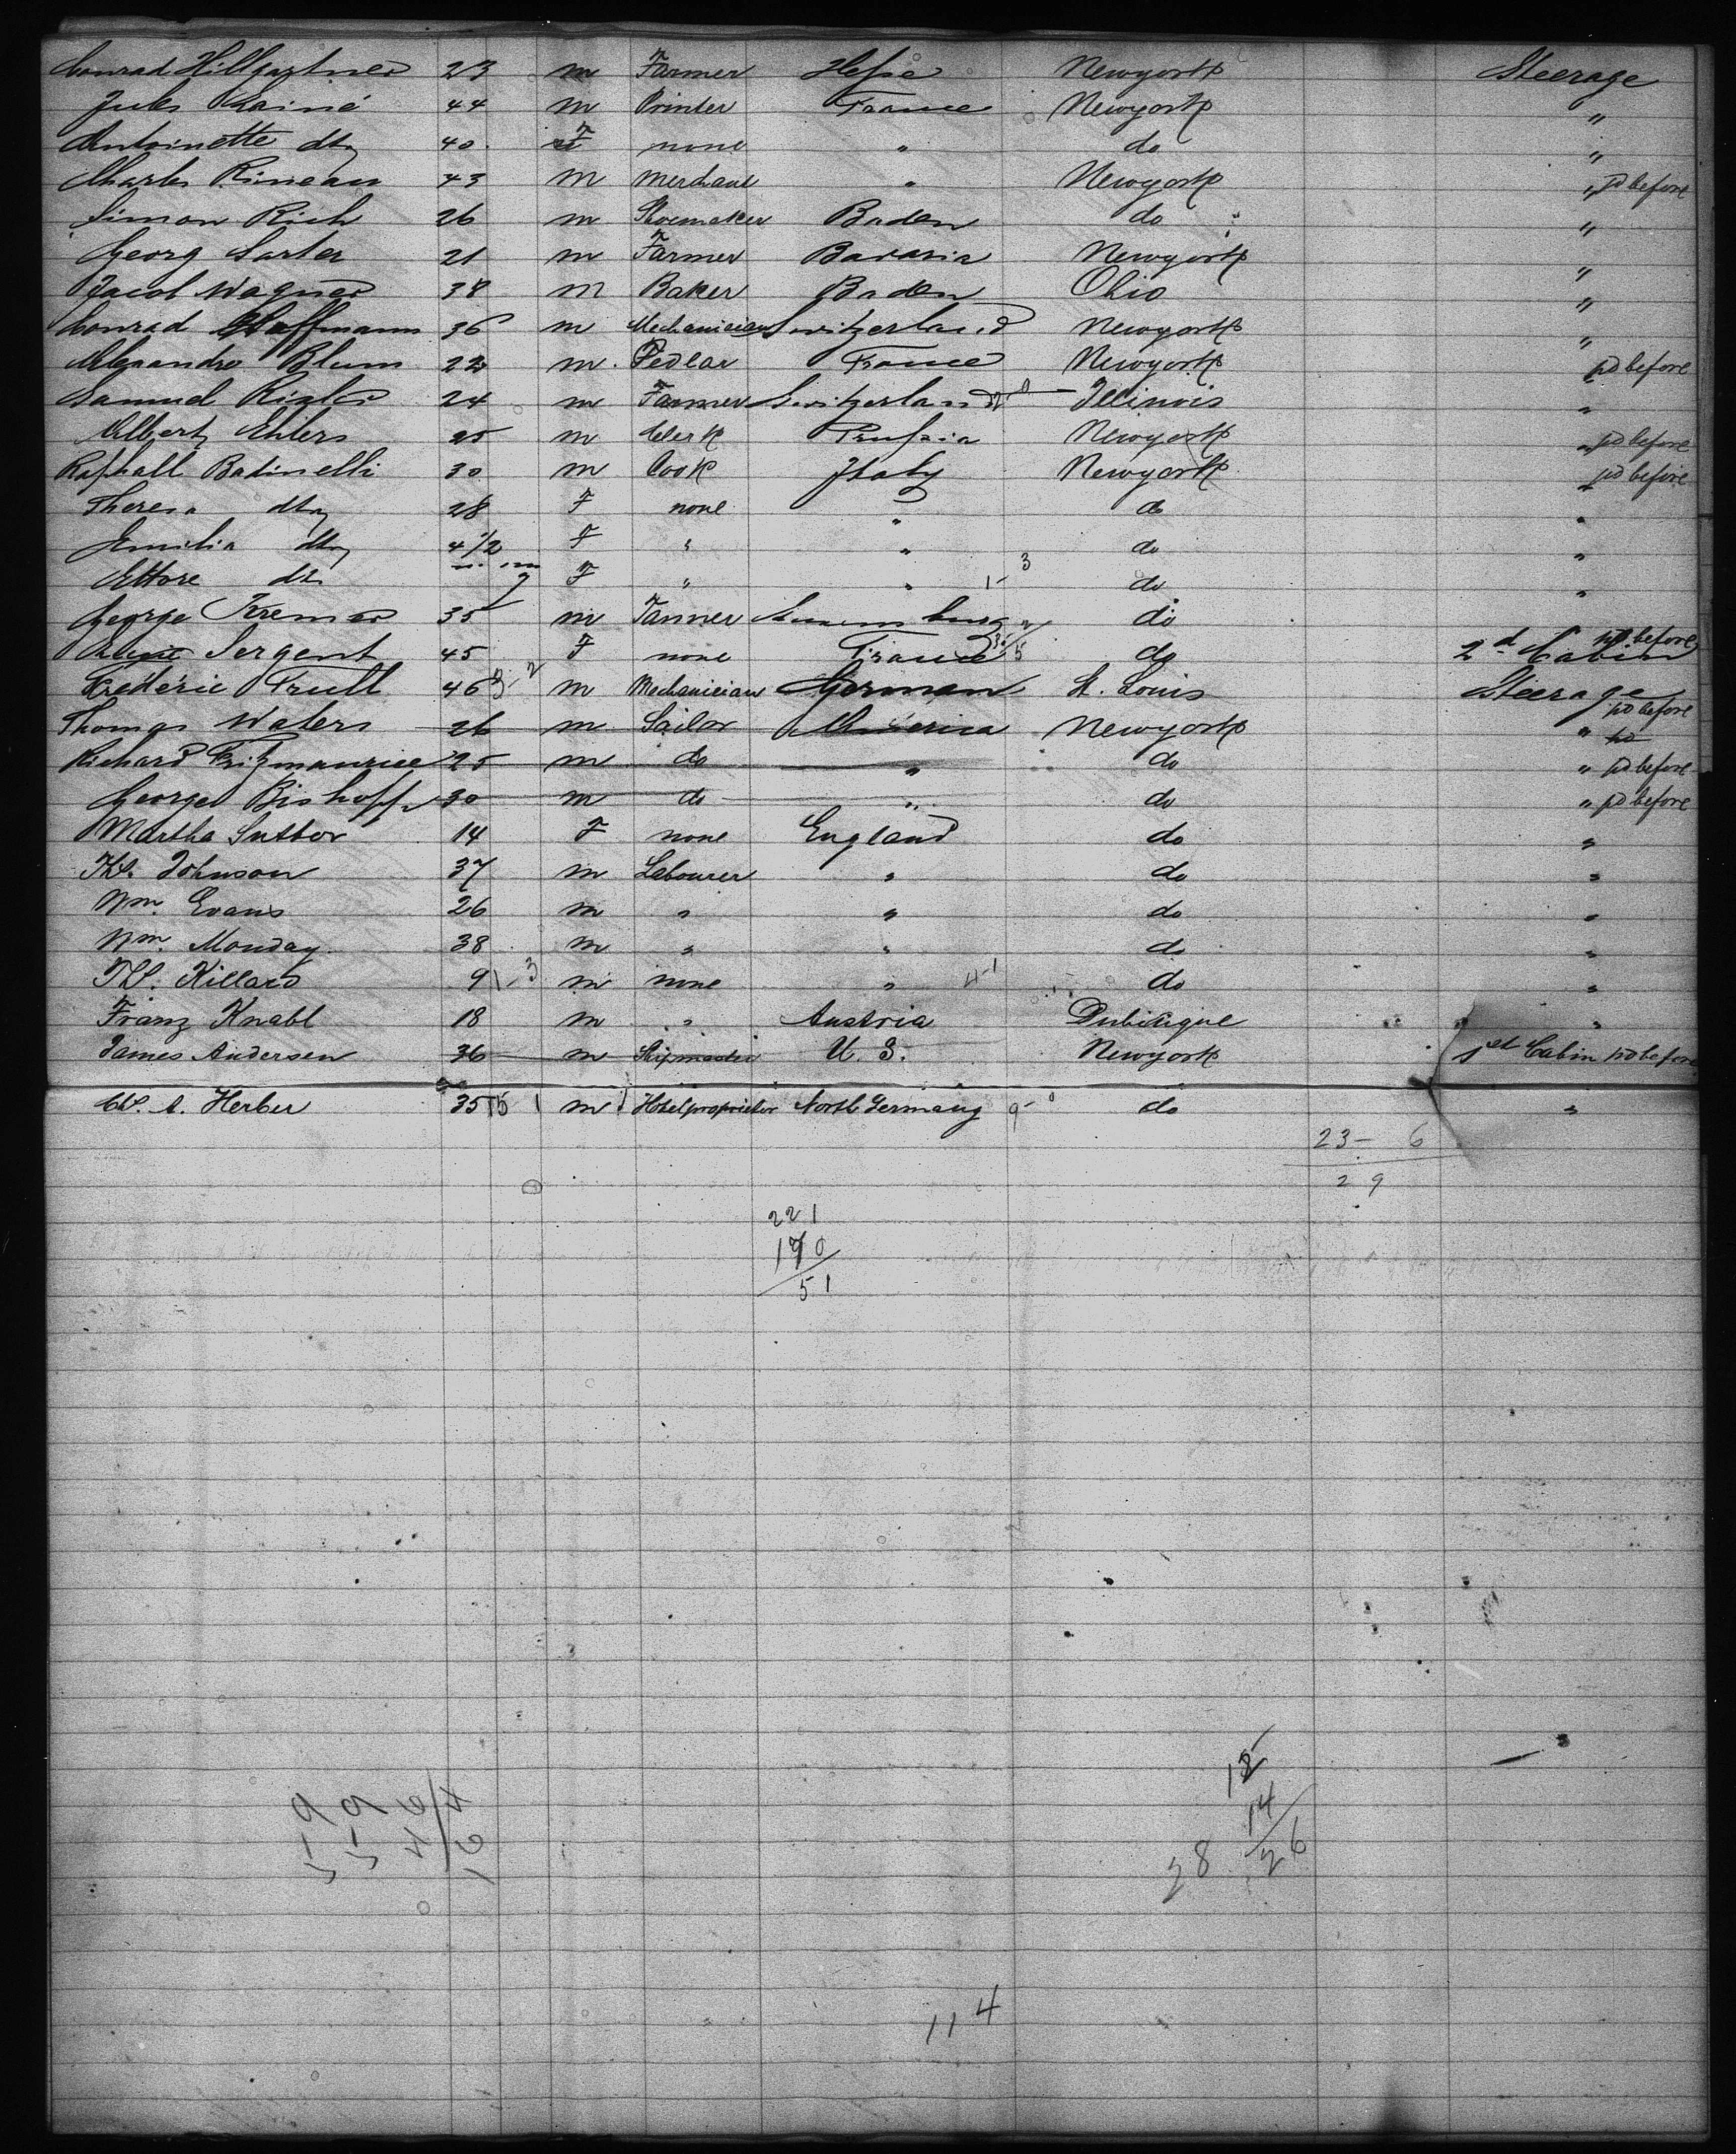 Conrad Hillgartner 23 m Farmer Hesse Newyork Steerage
Jules Lainé 44 m Printer France Newyork "
Antoinette dto 40 F none " do "
Charles Rineau 43 m Merchant " Newyork " pd before
Simon Rich 26 m Shoemaker Baden do "
Georg Sarter 21 m Farmer Bavaria Newyork "
Jacob Wagner 38 m Baker Baden Ohio "
Conrad Hoffmann 36 m Mechanician Switzerland Newyork "
Alexandre Blum 22 m Pedlar France Newyork " pd before
Samuel Rigler 24 m Farmer Switzerland Illinois "
Albert Ehlers 25 m Clerk Prussia Newyork " pd before
Raphall Batinelli 30 m Cook Italy Newyork " pd before
Theresa dto 28 F none " do "
Emilia dto 4 1/2 F " " do "
Ettore dto F " " 1- 3 do "
George Kremer 35 m Tanner do "
Sergent 45 F none France do 2d Cabin pd before
Frédéric Trutt 46 3-2 m Mechanician German St. Louis Steerage
Thomas Waters 26 m Sailor America Newyork " pd before
Richard Fitzmaurice 25 m do " do " pd before
George Bishoff 30 m do " do " pd before
Martha Sutton 14 F none England do "
Ths. Johnson 37 m Labourer " do "
Wm. Evans 26 m " " do "
Wm. Monday 38 m " " do "
Ths. Killard 9 1-3 m none " 4-1 do "
Franz Knabl 18 m " Austria Dubuque "
James Andersen 36 m Shipmaster U. S. Newyork 1st Cabin pd before
Chs. A. Herber 35 m Hotelproprietor North Germany 9- 0 do "
23- 6
29
221
170
51
12
14
26
28
114